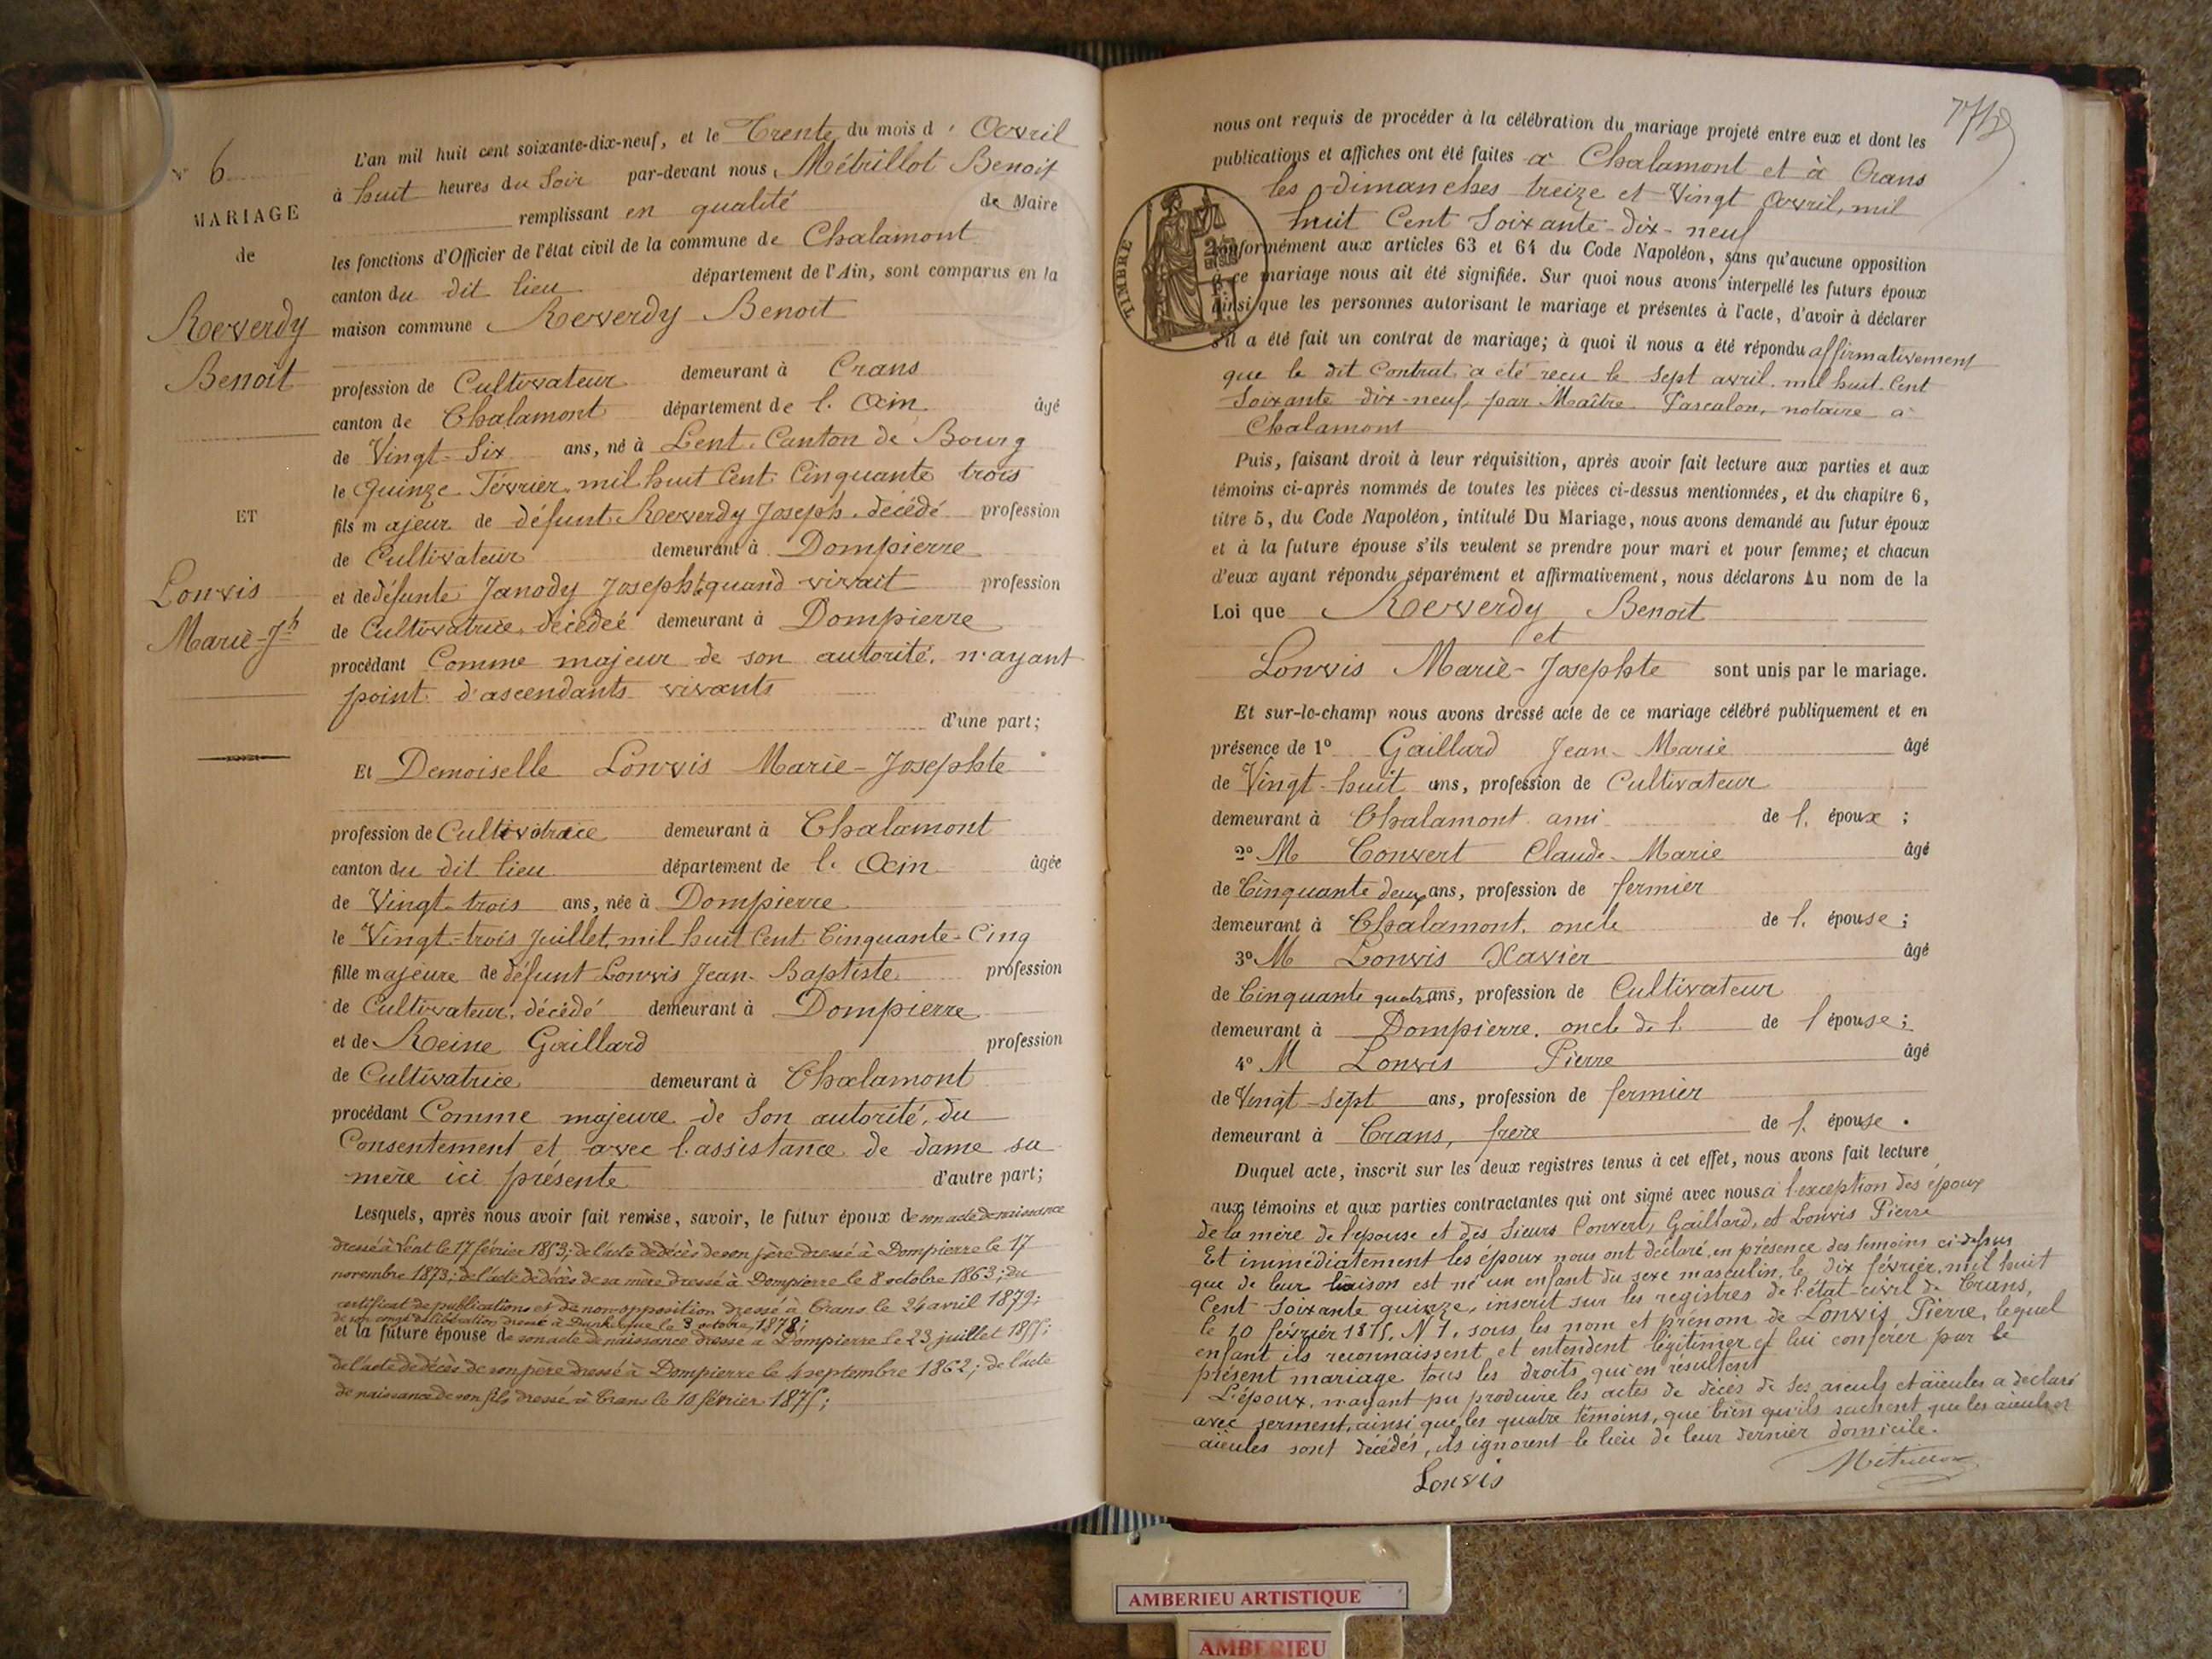 N° 6
MARIAGE
de
Reverdy
Benoit
ET
Lonvis
Marie-Jh
L'an mil huit cent soixante-dix-neuf, et le Trente du mois d'Avril
à huit heures du Soir par-devant nous, Métrillot Benoit
remplissant en qualité de Maire
les fonctions d'Officier de l'état civil de la commune de Chalamont
canton du dit lieu département de l'Ain, sont comparus en la
maison commune Reverdy Benoit
profession de Cultivateur demeurant à Crans
canton de Chalamont département de l'Ain âgé
de Vingt-Six ans, né à Lent, Canton de Bourg
le Quinze Février, mil huit Cent Cinquante trois
fils majeur de défunt Reverdy Joseph, décédé profession
de Cultivateur demeurant à Dompierre
et de défunte Janody Josephte quand vivait profession
de Cultivatrice, décédeé demeurant à Dompierre
procédant Comme majeur de son autorité, n'ayant
point d'ascendants vivants
d'une part;
Et Demoiselle Lonvis Marie-Josephte
profession de Cultivatrice demeurant à Chalamont
canton du dit lieu département de l'Ain âgée
de Vingt-trois ans, née à Dompierre
le Vingt-trois Juillet, mil huit Cent Cinquante-Cinq
fille majeure de défunt Lonvis Jean-Baptiste profession
de Cultivateur, décédé demeurant à Dompierre
et de Reine Gaillard profession
de Cultivatrice demeurant à Chalamont
procédant Comme majeure de Son autorité, du
Consentement et avec l'assistance de dame sa
mère ici présente d'autre part;
Lesquels, après nous avoir fait remise, savoir, le futur époux de son acte de naissance
dressé à Lent le 17 février 1853; de l'acte de décès de son père dressé à Dompierre le 17
novembre 1873; de l'acte de décès de sa mère dressé à Dompierre le 8 octobre 1863; du
certificat de publications et de non-opposition dressé à Crans le 24 avril 1879;
de son congé de libération dressé à Dunkerque le 3 octobre 1878;
et la future épouse de son acte de naissance dressé à Dompierre le 23 juillet 1855;
de l'acte de décès de son père dressé à Dompierre le 4 septembre 1862; de l'acte
de naissance de son fils dressé à Crans le 10 février 1875;
nous ont requis de procéder à la célébration du mariage projeté entre eux et dont les
publications et affiches ont été faites à Chalamont et à Crans
les dimanches treize et Vingt Avril, mil
huit Cent Soixante-dix-neuf
conformément aux articles 63 et 64 du Code Napoléon, sans qu'aucune opposition
à ce mariage nous ait été signifiée. Sur quoi nous avons interpellé les futurs époux
ainsi que les personnes autorisant le mariage et présentes à l'acte, d'avoir à déclarer
s'il a été fait un contrat de mariage; à quoi il nous a été répondu affirmativement
que le dit Contrat a été reçu le Sept avril, mil huit Cent
Soixante dix-neuf, par Maître Pascalon, notaire à
Chalamont
TIMBRE
Puis, faisant droit à leur réquisition, après avoir fait lecture aux parties et aux
témoins ci-après nommés de toutes les pièces ci-dessus mentionnées, et du chapitre 6,
titre 5, du Code Napoléon, intitulé Du Mariage, nous avons demandé au futur époux
et à la future épouse s'ils veulent se prendre pour mari et pour femme; et chacun
d'eux ayant répondu séparément et affirmativement, nous déclarons Au nom de la
Loi que Reverdy Benoit
et
Lonvis Marie-Josephte sont unis par le mariage.
Et sur-le-champ nous avons dressé acte de ce mariage célébré publiquement et en
présence de 1° Gaillard Jean-Marie âgé
de Vingt-huit ans, profession de Cultivateur
demeurant à Chalamont ami de l'époux;
2° M Convert Claude-Marie âgé
de Cinquante deux ans, profession de fermier
demeurant à Chalamont, oncle de l'épouse;
3° M Lonvis Xavier âgé
de Cinquante quatre ans, profession de Cultivateur
demeurant à Dompierre, oncle de l de l'épouse;
4° M Lonvis Pierre âgé
de Vingt-sept ans, profession de fermier
demeurant à Crans, frère de l'épouse.
Duquel acte, inscrit sur les deux registres tenus à cet effet, nous avons fait lecture
aux témoins et aux parties contractantes qui ont signé avec nous à l'exception des époux
de la mère de l'épouse et des Sieurs Convert, Gaillard, et Lonvis Pierre
Et immédiatement les époux nous ont déclaré, en présence des témoins ci-dessus
que de leur liaison est né un enfant du sexe masculin, le dix février, mil huit
Cent Soixante quinze, inscrit sur les registres de l'état-civil de Crans,
le 10 février 1875, N° 7, sous les nom et prénom de Lonvis Pierre, lequel
enfant ils reconnaissent et entendent légitimer et lui conférer par le
présent mariage tous les droits qui en résultent
L'époux, n'ayant pu produire les actes de décès de ses aïeuls et aïeules a déclaré
avec serment, ainsi que les quatre témoins, que bien qu'ils sachent que les aïeuls et
aïeules sont décédés, ils ignorent le lieu de leur dernier domicile.
Lonvis
AMBERIEU ARTISTIQUE
AMBERIEU